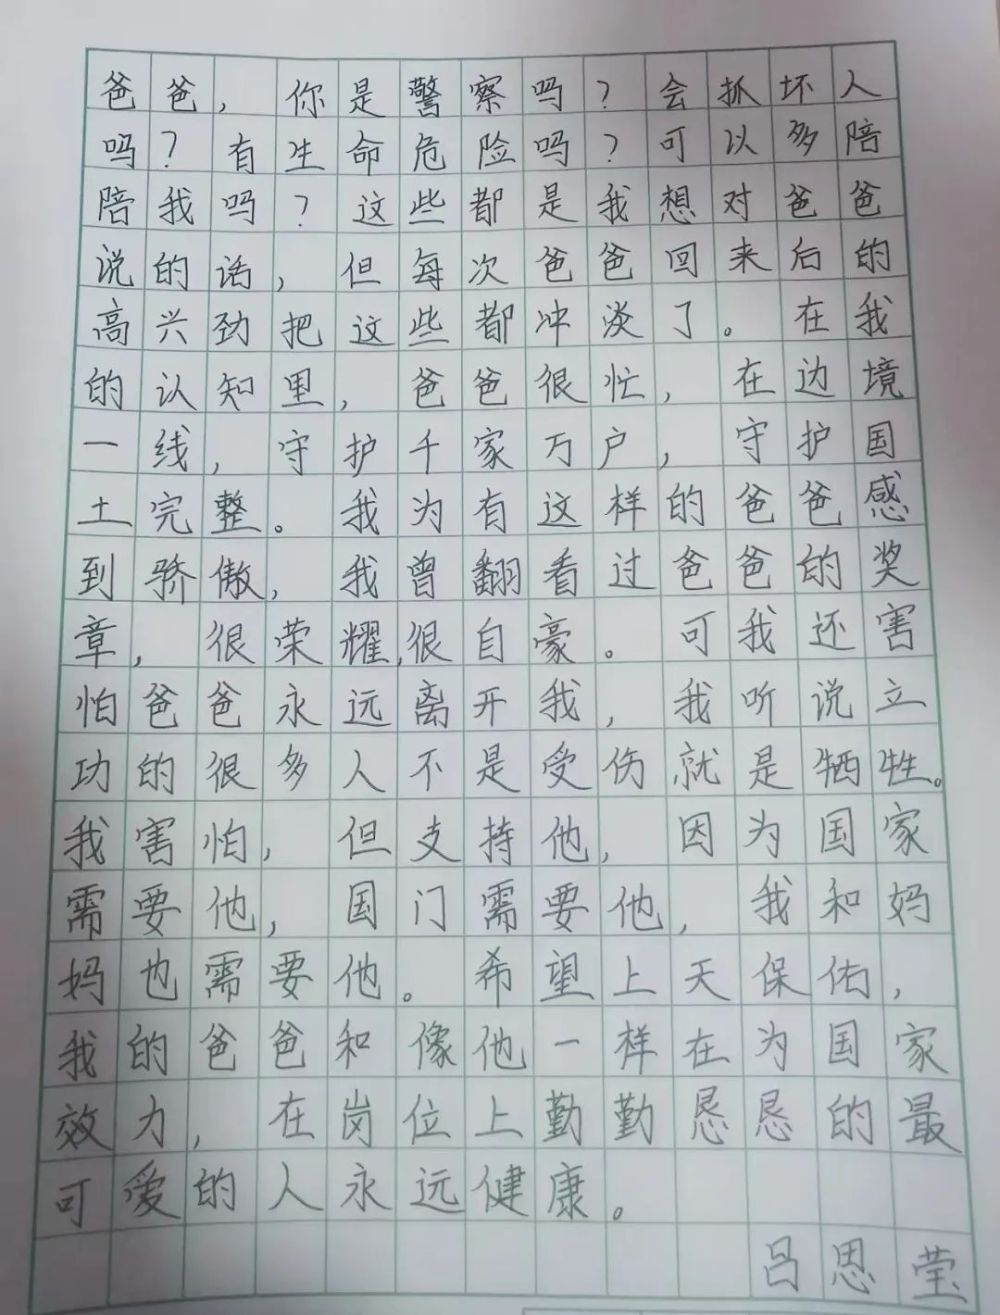 爸爸，你是警察吗？会抓坏人
吗？有生命危险吗？可以多陪
陪我吗？这些都是我想对爸爸
说的话，但每次爸爸回来后的
高兴劲把这些都冲淡了。在我
的认知里，爸爸很忙，在边境
一线，守护千家万户，守护国
土完整。我为有这样的爸爸感
到骄傲，我曾翻看过爸爸的奖
章，很荣耀，很自豪。可我还害
怕爸爸永远离开我，我听说立
功的很多人不是受伤就是牺牲。
我害怕，但支持他，因为国家
需要他，国门需要他，我和妈
妈也需要他。希望上天保佑，
我的爸爸和像他一样在为国家
效力，在岗位上勤勤恳恳的最
可爱的人永远健康。
吕思莹